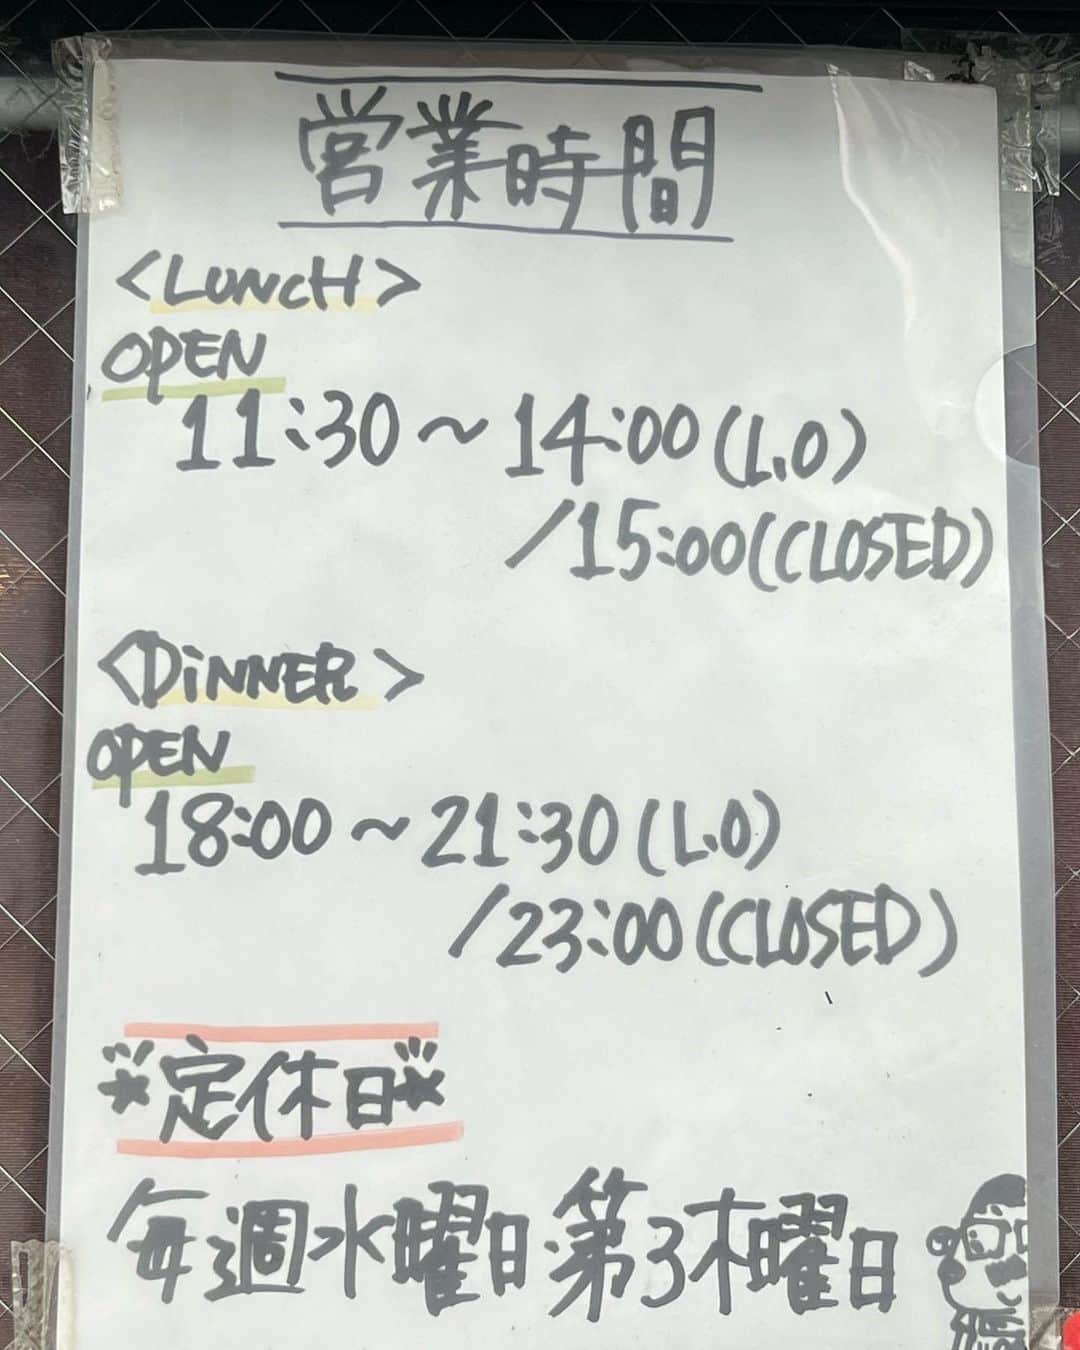 営業時間
<LUNCH>
OPEN
11:30～14:00(L.O)
/15:00(CLOSED)
<DiNNER>
OPEN
18:00～21:30(L.O)
/23:00(CLOSED)
★定休日★
毎週水曜日・第3木曜日